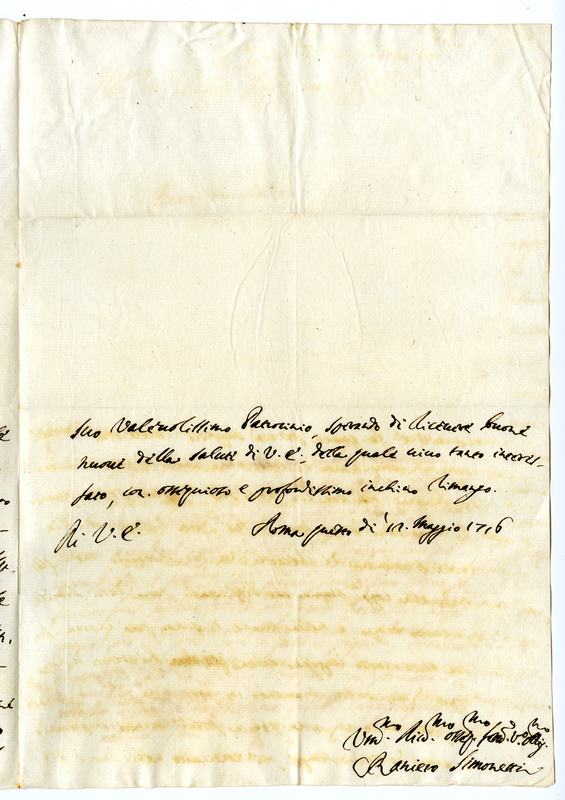 suo Valevolissimo Patrocinio, sperando di ricevere buone
nuove della salute di V. E., della quale vivo tanto interes-
sato, con ossequioso e profondissimo inchino rimango.
Di V. E. Roma questo dì 12. Maggio 1716
Um.mo
Raniero Simonetti